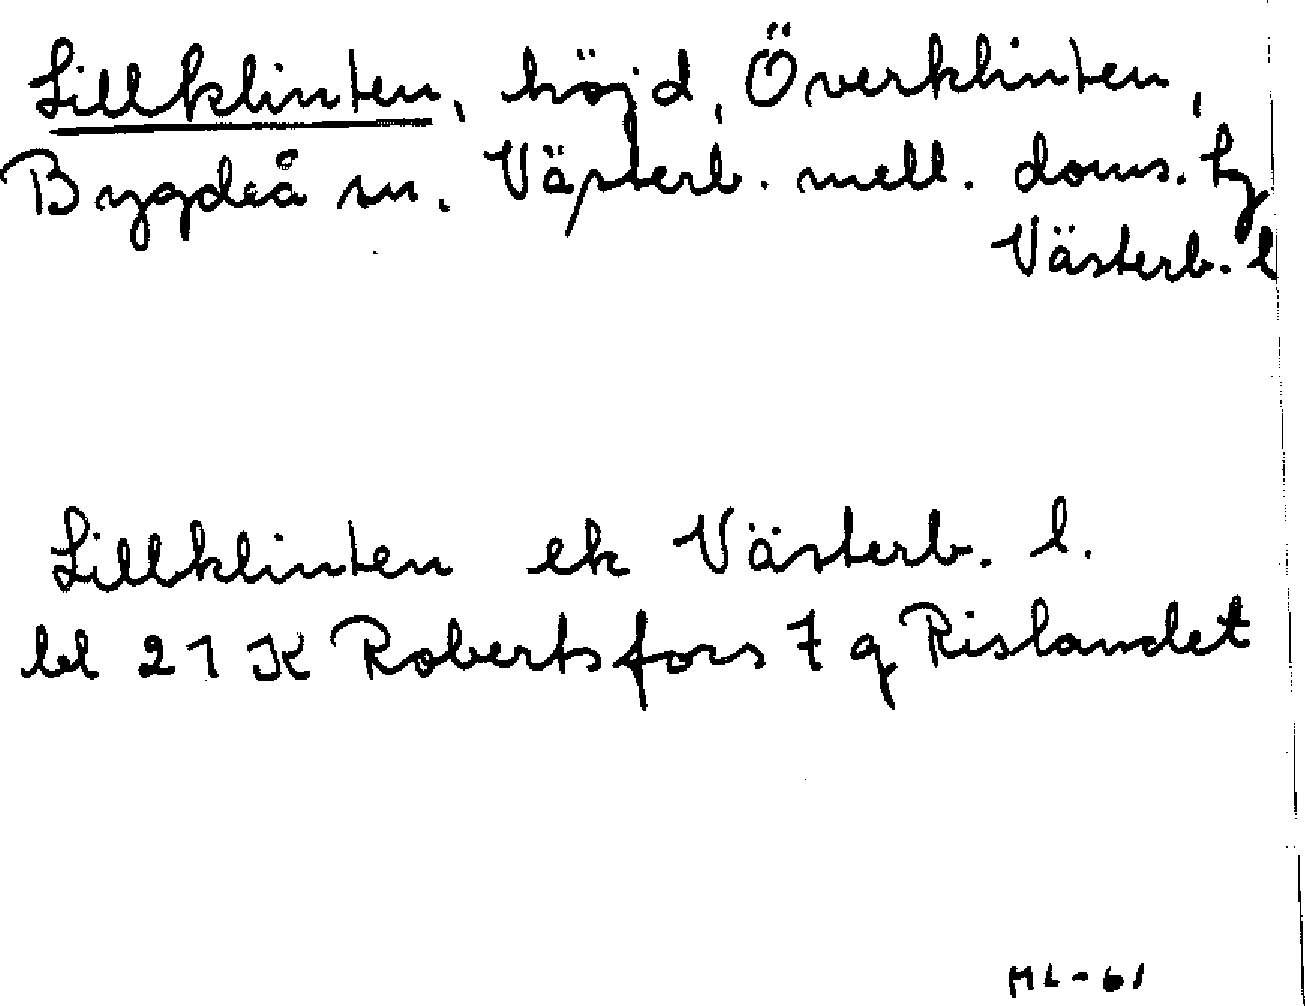 Lillklinten, höjd, Överklinten,
Bygdeå sn. Västerb. mell. doms. tg
Västerb. l
Lillklinten ek Västerb. l.
bl 21 K Robertsfors 7 g Rislandet
ML-61